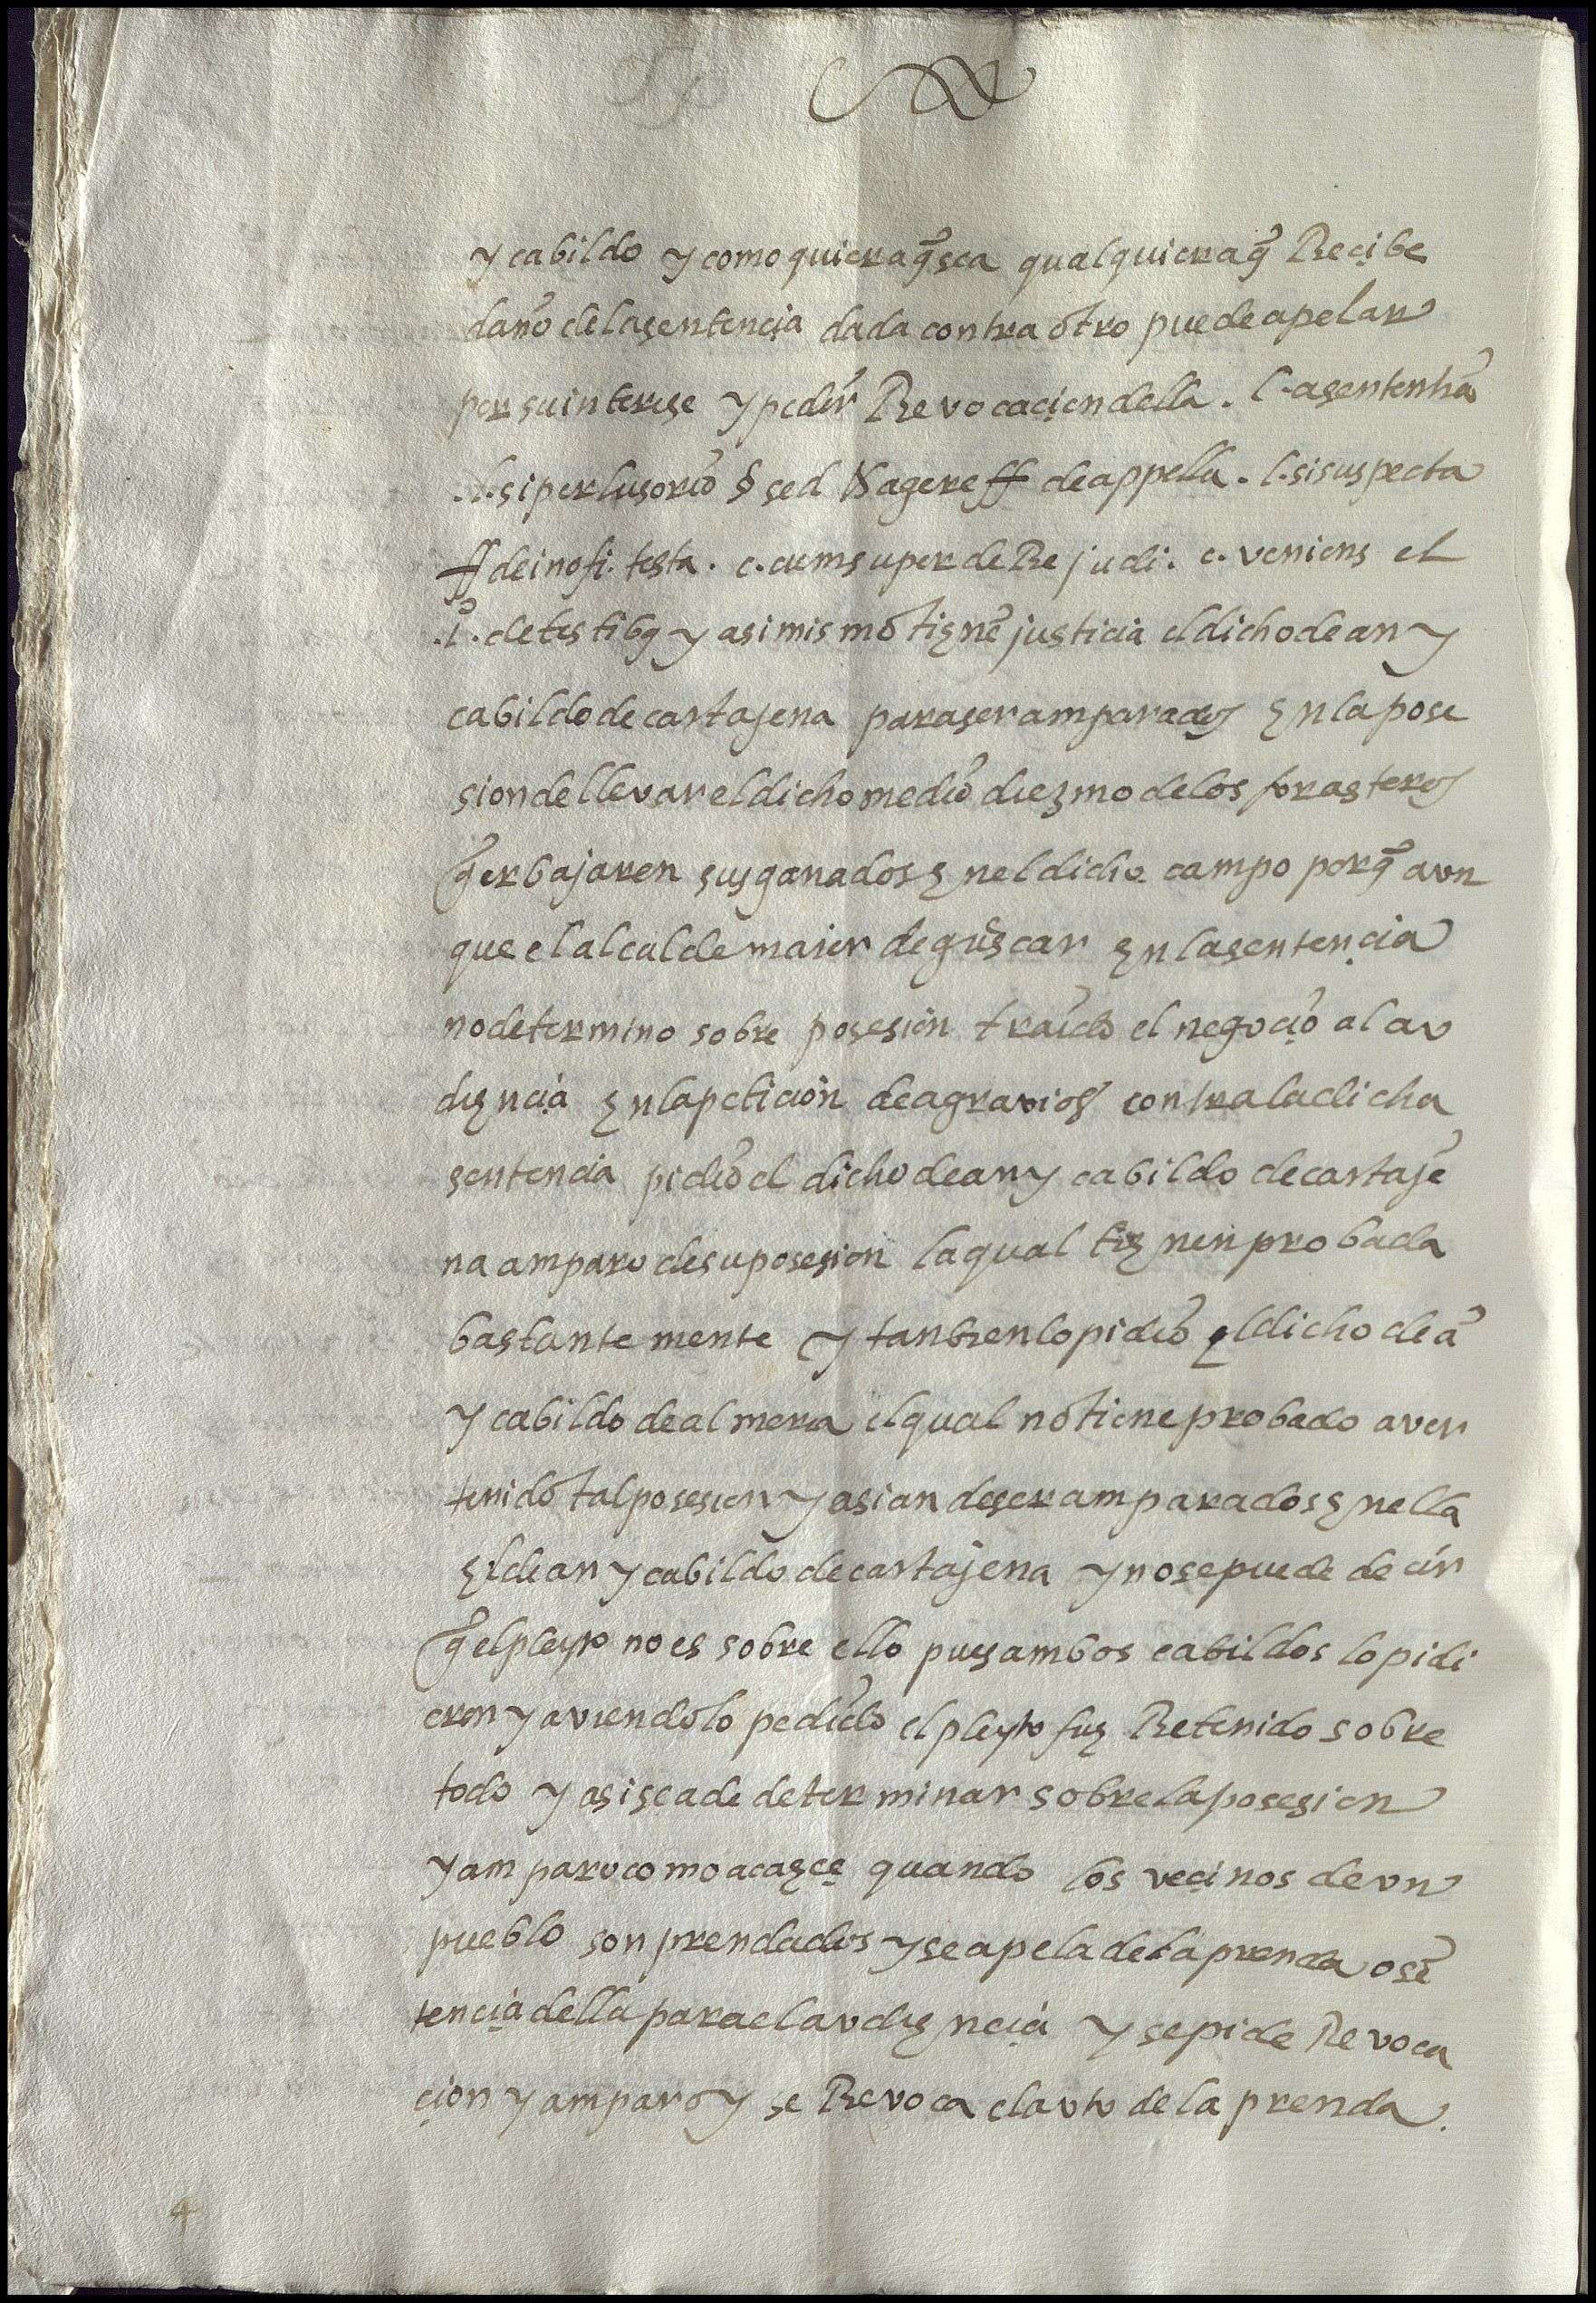 y cabildo y como quiera q̃ sea qualquiera q̃ Recibe
daño de la sentencia dada contra otro puede apelar
por su interese y pedir Revocacion della . l. a sententiã
. l. si perlusorio § sed & agere ff de appella . l. si suspecta
ff de inofi. testa . c. cum super de Re judi . c. veniens el
.i. de testibꝯ y asi mismo tiene justicia el dicho dean y
cabildo de cartajena para ser amparados en la pose
sion de llevar el dicho medio diezmo de los forasteros
q̃ erbajaren sus ganados en el dicho campo porq̃ avn
que el alcalde maior de guescar en la sentencia
no determino sobre posesion traido el negocio al av
diencia en la peticion de agravios contra la dicha
sentencia pidio el dicho dean y cabildo de cartaje
na amparo de su posesion la qual tienen probada
bastante mente y tanbien lo pidio el dicho deã
y cabildo de almeria el qual no tiene probado aver
tenido tal posesion y asi an de ser amparados en ella
el dean y cabildo de cartajena y no se puede decir
q̃ el pleyto no es sobre ello pues ambos cabildos lo pidi
eron y aviendolo pedido el pleyto fue Retenido sobre
todo y asi se a de determinar sobre la posesion
y amparo como acaece quando los vecinos de vn
pueblo son prendados y se apela de la prenda o sẽ
tencia della para el avdiencia y se pide Revoca
cion y amparo y se Revoca el avto de la prenda .